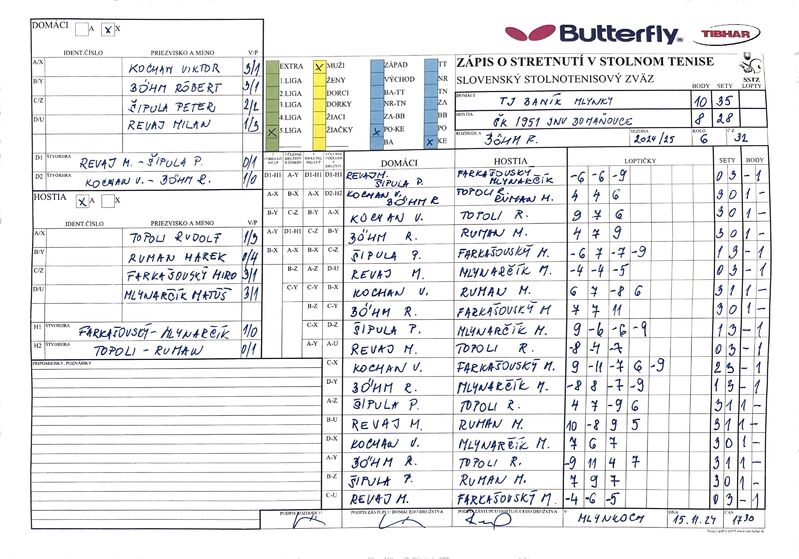 DOMÁCI A x X
Butterfly
TIBHAR
IDENT.ČÍSLO PRIEZVISKO A MENO V/P
A/X KOCHAN VIKTOR 3/1
B/Y BÖHM RÓBERT 3/1
C/Z ŠIPULA PETER 2/2
D/U REVAJ MILAN 1/3
D1 ŠTVORHRA REVAJ M. - ŠIPULA P. 0/1
D2 ŠTVORHRA KOCHAN V. - BÖHM R. 1/0
HOSTIA x A X
IDENT.ČÍSLO PRIEZVISKO A MENO V/P
A/X TOPOLI RUDOLF 1/3
B/Y RUMAN MAREK 0/4
C/Z FARKAŠOVSKÝ MIRO 3/1
D/U MLYNARČÍK MATÚŠ 3/1
H1 ŠTVORHRA FARKAŠOVSKÝ - MLYNARČÍK 1/0
H2 ŠTVORHRA TOPOLI - RUMAN 0/1
PRIPOMIENKY, POZNÁMKY
EXTRA x MUŽI ZÁPAD TT
1 LIGA ŽENY VÝCHOD NR
2 LIGA DORCI BA-TT TN
3 LIGA DORKY NR-TN ZA
4 LIGA ŽIACI ZA-BB BB
x 5.LIGA ŽIAČKY x PO-KE PO
BA x KE
ZÁPIS O STRETNUTÍ V STOLNOM TENISE
SLOVENSKÝ STOLNOTENISOVÝ ZVÄZ
SSTZ
BODY SETY LOPTY
DOMÁCI TJ BANÍK MLYNKY 10 35
HOSTIA ŠK 1951 SNV DOMAŇOVCE 8 28
ROZHODCA BÖHM R. SEZÓNA 2024/25 KOLO 6 Č.Z 32
DOMÁCI HOSTIA LOPTIČKY SETY BODY
D1-H1 A-Y D1-H1 D1-H1 REVAJ M. ŠIPULA P. FARKAŠOVSKÝ MLYNARČÍK -6 -6 -9 0 3 - 1
A-X B-X A-X D2-H2 KOCHAN V. BÖHM R TOPOLI R. RUMAN M. 4 4 6 3 0 1 -
B-Y C-Z B-Y A-X KOCHAN V. TOPOLI R. 9 7 6 3 0 1 -
A-Y D1-H1 C-Z B-Y BÖHM R. RUMAN M. 4 7 9 3 0 1 -
B-X A-X D-U C-Z ŠIPULA P. FARKAŠOVSKÝ M. -6 7 -7 -9 1 3 - 1
B-Z A-Z D-U REVAJ M. MLYNARČÍK M. -4 -4 -5 0 3 - 1
C-Y B-X KOCHAN V. RUMAN M. 6 7 -8 6 3 1 1 -
B-Z C-Y BÖHM R. FARKAŠOVSKÝ M 7 7 11 3 0 1 -
C-X D-Z ŠIPULA P. MLYNARČÍK M. 9 -6 -6 -9 1 3 - 1
A-Y A-U REVAJ M. TOPOLI R. -8 -4 -7 0 3 - 1
C-X KOCHAN V. FARKAŠOVSKÝ M. 9 -11 -7 6 -9 2 3 - 1
D-Y BÖHM R. MLYNARČÍK M. -8 8 -7 -9 1 3 - 1
A-Z ŠIPULA P. TOPOLI R. 4 7 -9 6 3 1 1 -
B-U REVAJ M. RUMAN M. 10 -8 9 5 3 1 1 -
D-X KOCHAN V. MLYNARČÍK M. 7 6 7 3 0 1 -
A-Y BÖHM R. TOPOLI R. -9 11 4 7 3 1 1 -
B-Z ŠIPULA P. RUMAN M. 7 9 7 3 0 1 -
C-U REVAJ M. FARKAŠOVSKÝ M. -4 -6 -5 0 3 - 1
PODPIS ROZHODCU PODPIS ZÁSTUPCU DOMÁCEHO DRUŽSTVA PODPIS ZÁSTUPCU HOSŤUJÚCEHO DRUŽSTVA V MLYNKOCH DŇA 15.11.24 ČAS 17 30